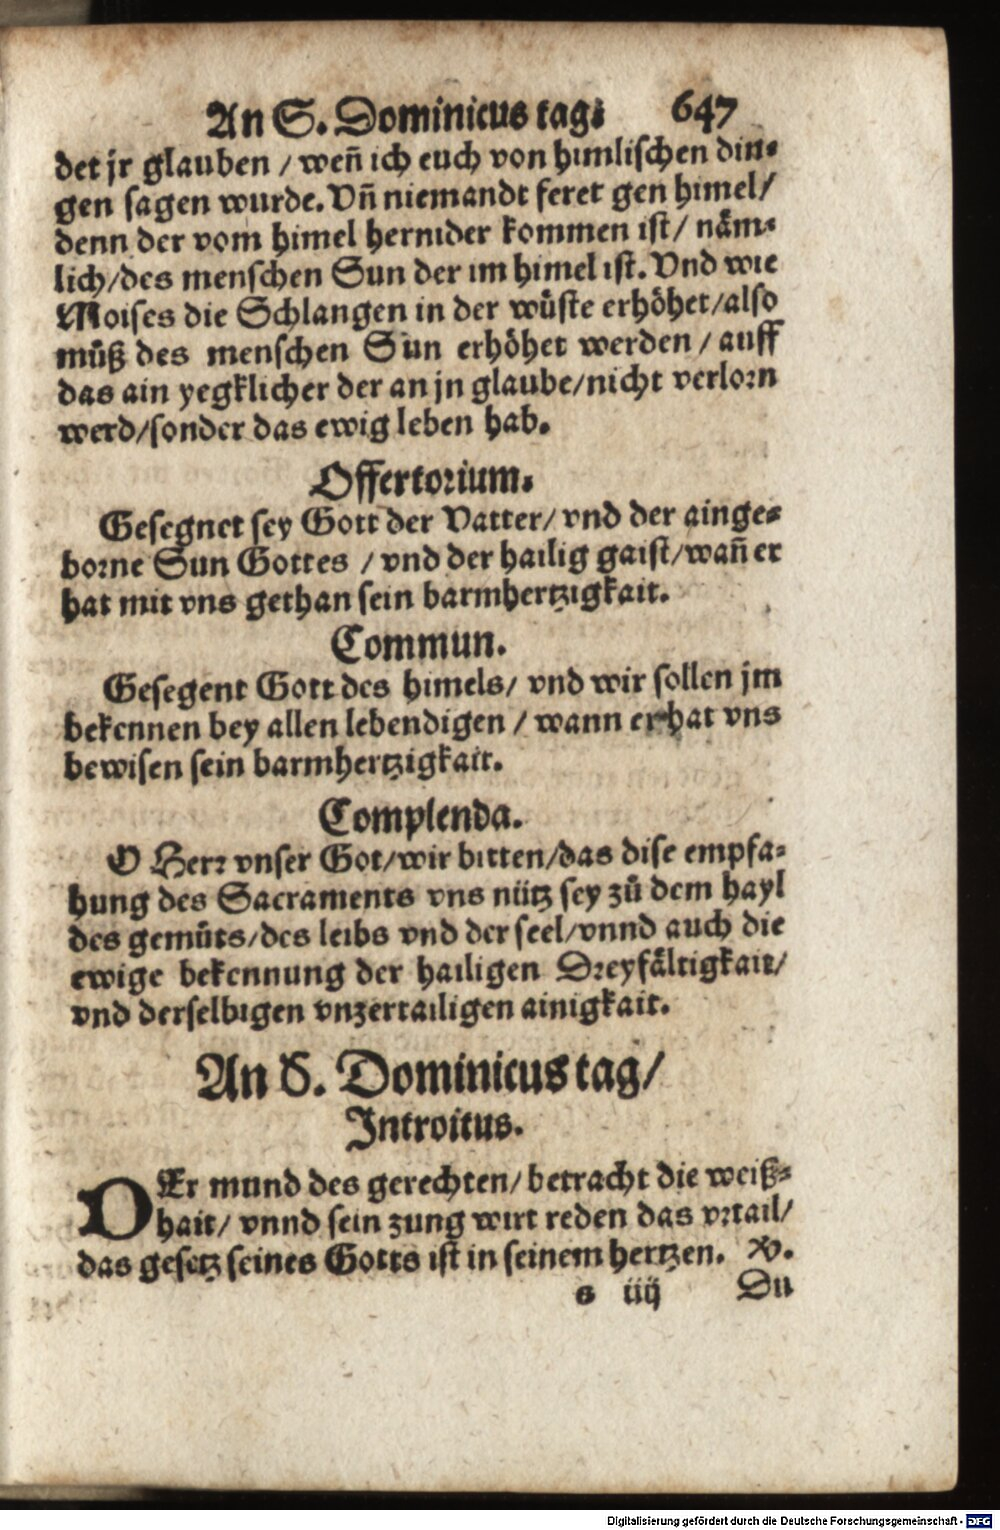 An S. Dominicus tag. 647
det jr glauben / weñ ich euch von himlischen din-
gen sagen wurde. Vñ niemandt feret gen himel/
denn der vom himel hernider kommen ist / näm-
lich/des menschen Sun der im himel ist. Vnd wie
Moises die Schlangen in der wüste erhöhet/also
můß des menschen Sun erhöhet werden / auff
das ain yegklicher der an jn glaube/nicht verlorn
werd/sonder das ewig leben hab.
Offertorium.
Gesegnet sey Gott der Vatter/ vnd der ainge-
borne Sun Gottes / vnd der hailig gaist/wañ er
hat mit vns gethan sein barmhertzigkait.
Commun.
Gesegent Gott des himels/ vnd wir sollen jm
bekennen bey allen lebendigen / wann er hat vns
bewisen sein barmhertzigkait.
Complenda.
O Herr vnser Got/wir bitten/das dise empfa-
hung des Sacraments vns nütz sey zů dem hayl
des gemůts/des leibs vnd der seel/vnnd auch die
ewige bekennung der hailigen Dreyfältigkait/
vnd derselbigen vnzertailigen ainigkait.
An S. Dominicus tag/
Introitus.
DEr mund des gerechten/ betracht die weiß-
hait/ vnnd sein zung wirt reden das vrtail/
das gesetz seines Gotts ist in seinem hertzen. V.
s iiij Du
Digitalisierung gefördert durch die Deutsche Forschungsgemeinschaft - DFG